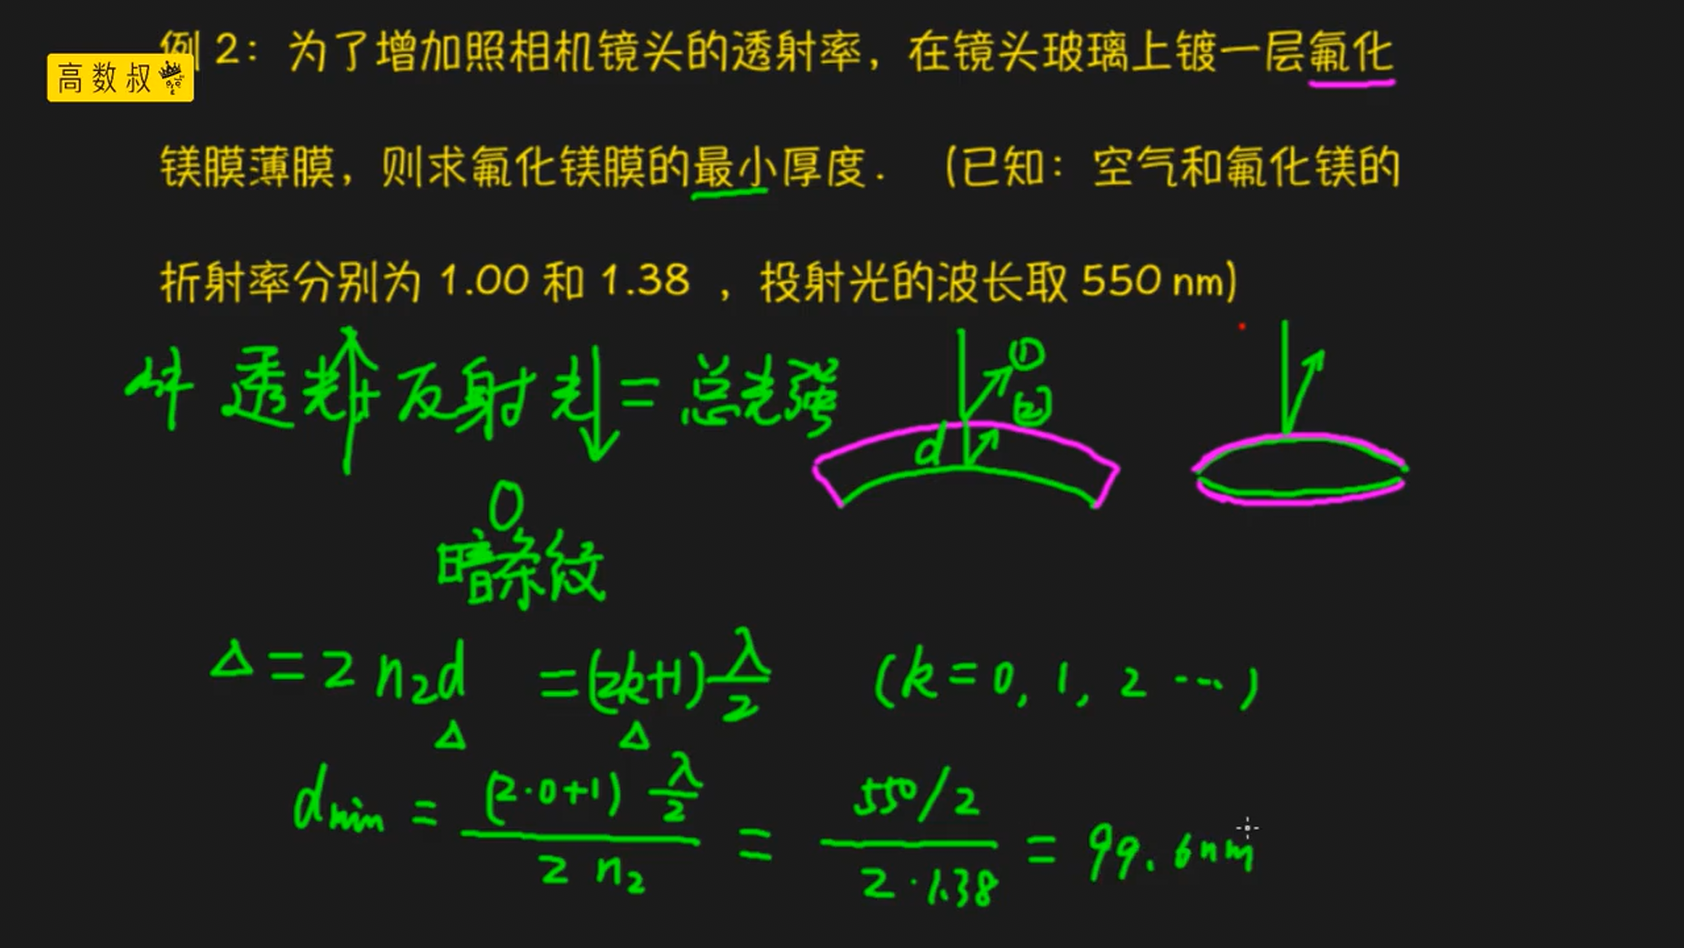 例 2：为了增加照相机镜头的透射率，在镜头玻璃上镀一层氟化
高数叔
镁膜薄膜，则求氟化镁膜的最小厚度．（已知：空气和氟化镁的
折射率分别为 1.00 和 1.38 ，投射光的波长取 550 nm)
透光+反射光↓=总光强
(1)
(2)
d
0
暗条纹
Δ=2n₂d =(2k+1)λ/2 (k=0,1,2…)
Δ Δ
dmin = (2·0+1)λ/2 / 2n₂ = 550/2 / 2·1.38 = 99.6nm